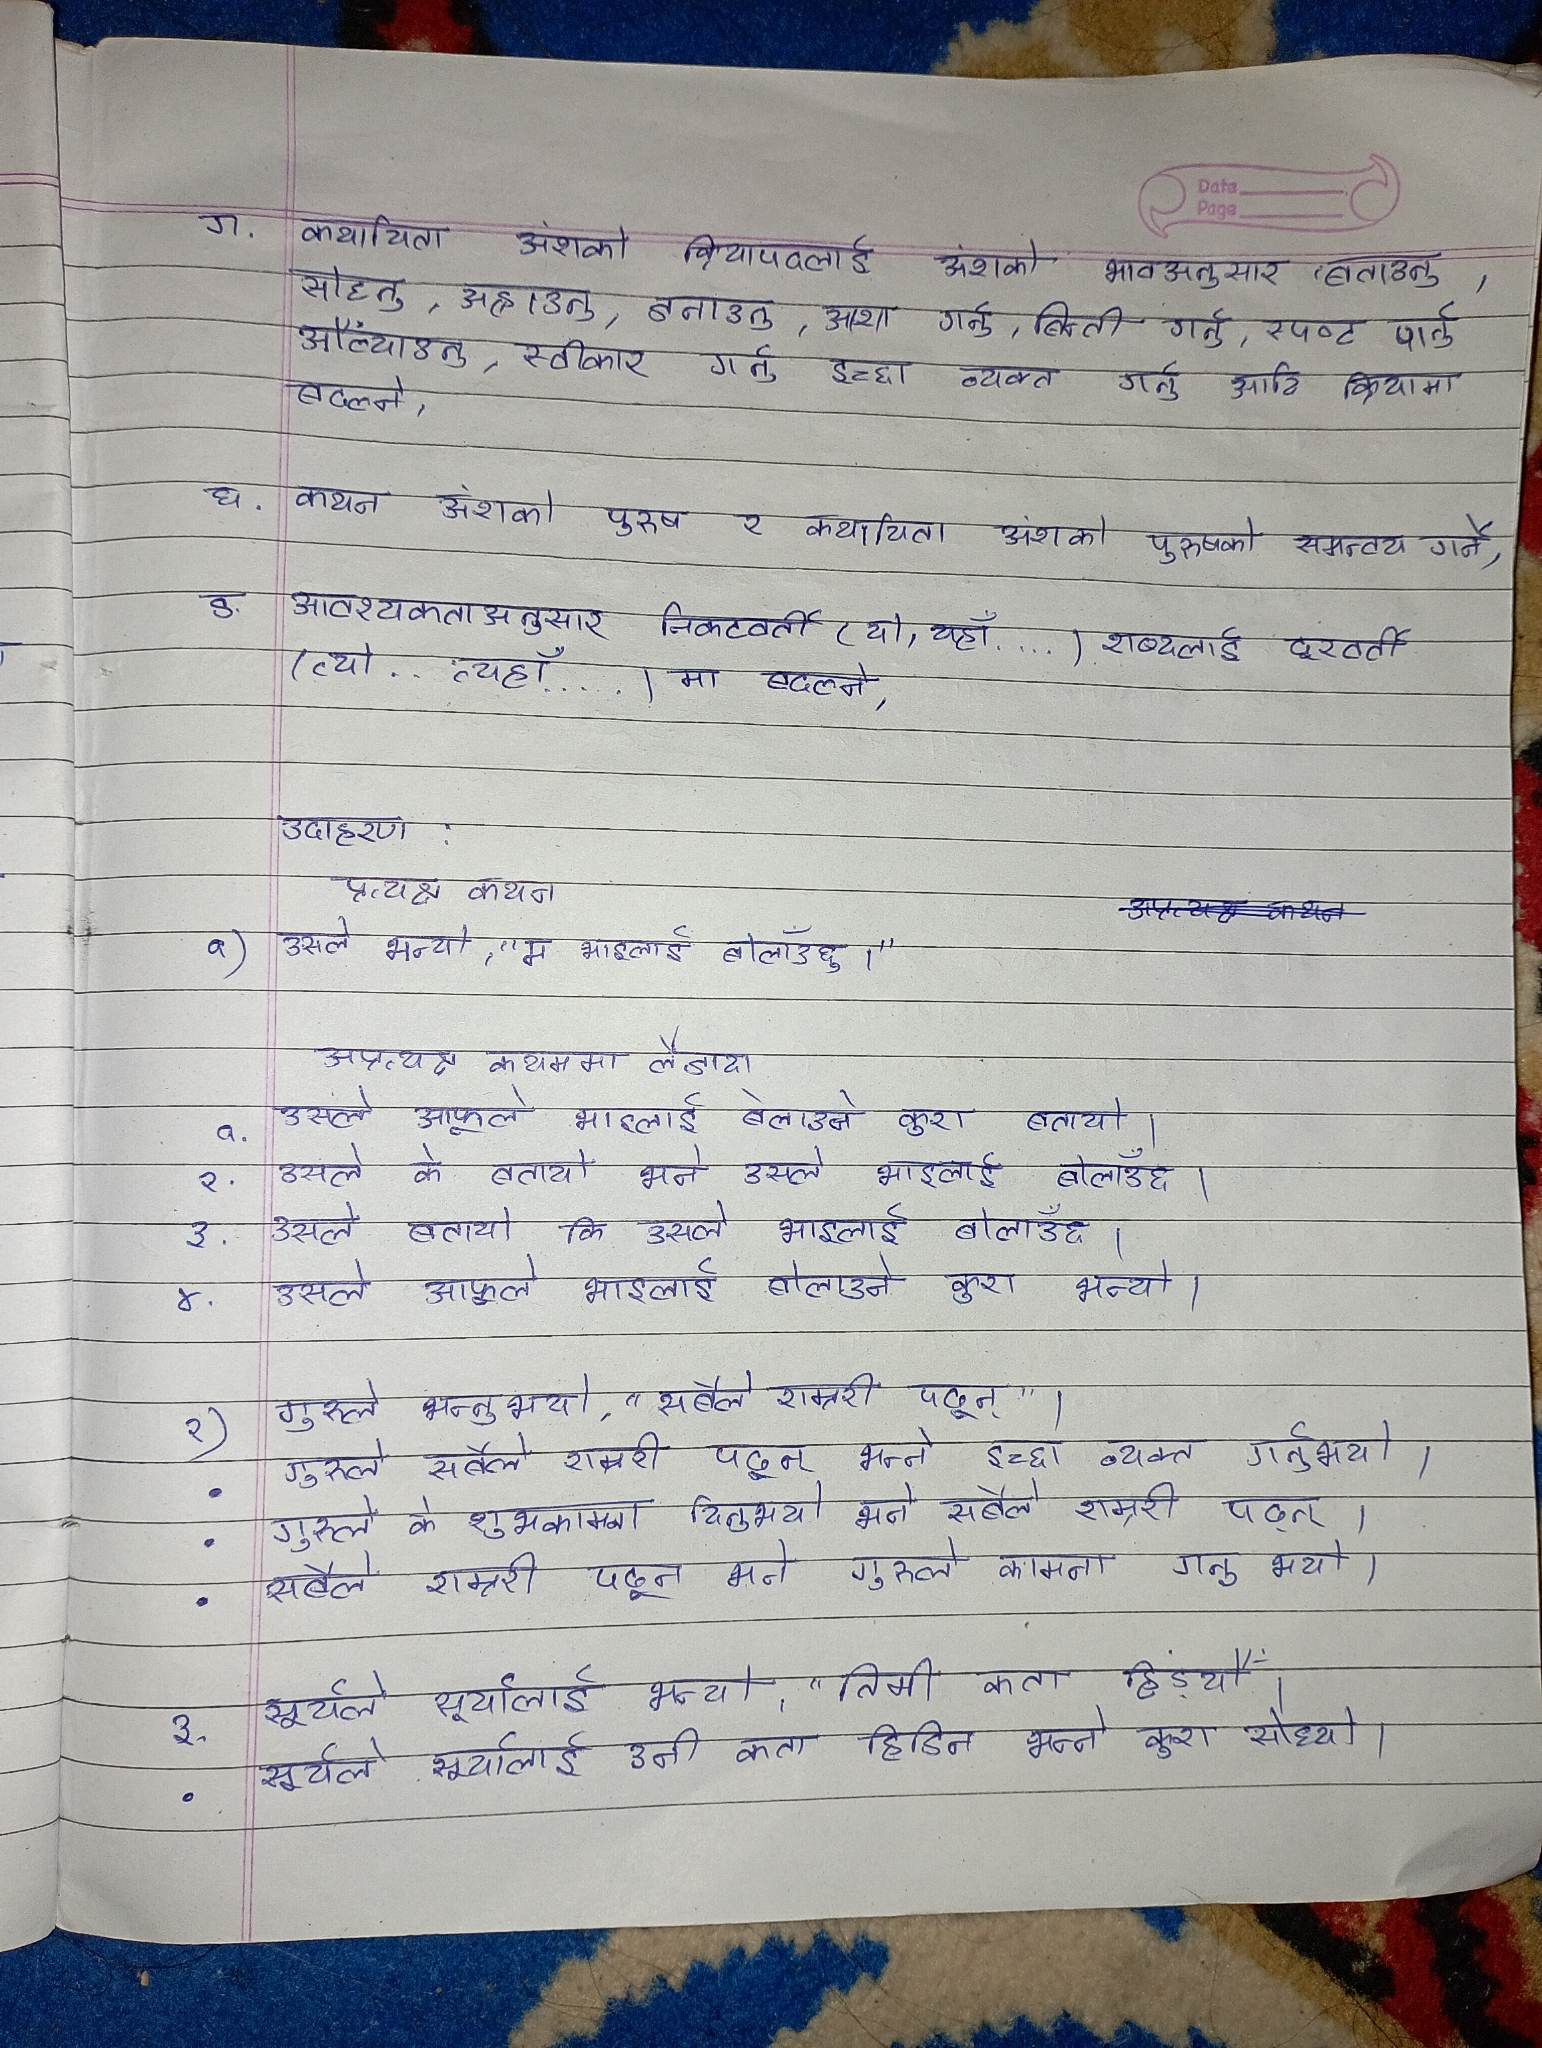 Data
Page
ग. कथायिता अंशको क्रियापदलाई अंशको भावअनुसार बताउनु,
सोध्नु, अह्राउनु, बनाउनु, आशा गर्नु, बिन्ती गर्नु, स्पष्ट पार्नु
औंल्याउनु, स्वीकार गर्नु इच्छा व्यक्त गर्नु आदि क्रियामा
बदल्ने,
घ. कथन अंशको पुरुष र कथायिता अंशको पुरुषको समन्वय गर्ने,
ङ. आवश्यकताअनुसार निकटवर्ती (यो, यहाँ....) शब्दलाई दूरवर्ती
(त्यो.. त्यहाँ.....) मा बदल्ने,
उदाहरण :
प्रत्यक्ष कथन अप्रत्यक्ष कथन
१) उसले भन्यो, "म भाइलाई बोलाउँछु।"
अप्रत्यक्ष कथनमा लैजादा
१. उसले आफूले भाइलाई बेलाउने कुरा बतायो।
२. उसले के बतायो भने उसले भाइलाई बोलाउँछ।
३. उसले बतायो कि उसले भाइलाई बोलाउँछ।
४. उसले आफूले भाइलाई बोलाउने कुरा भन्यो।
२) गुरुले भन्नुभयो, "सबैले राम्ररी पढून्"।
• गुरुले सबैले राम्ररी पढून् भन्ने इच्छा व्यक्त गर्नुभयो।
• गुरुले के शुभकामना दिनुभयो भने सबैले राम्ररी पढून्।
• सबैले राम्ररी पढून भने गुरुले कामना गनु भयो।
३. सूर्यले सूर्यालाई भन्यो, "तिमी कता हिँड्यौ"।
• सूर्यले सूर्यालाई उनी कता हिडिन भन्ने कुरा सोध्यो।